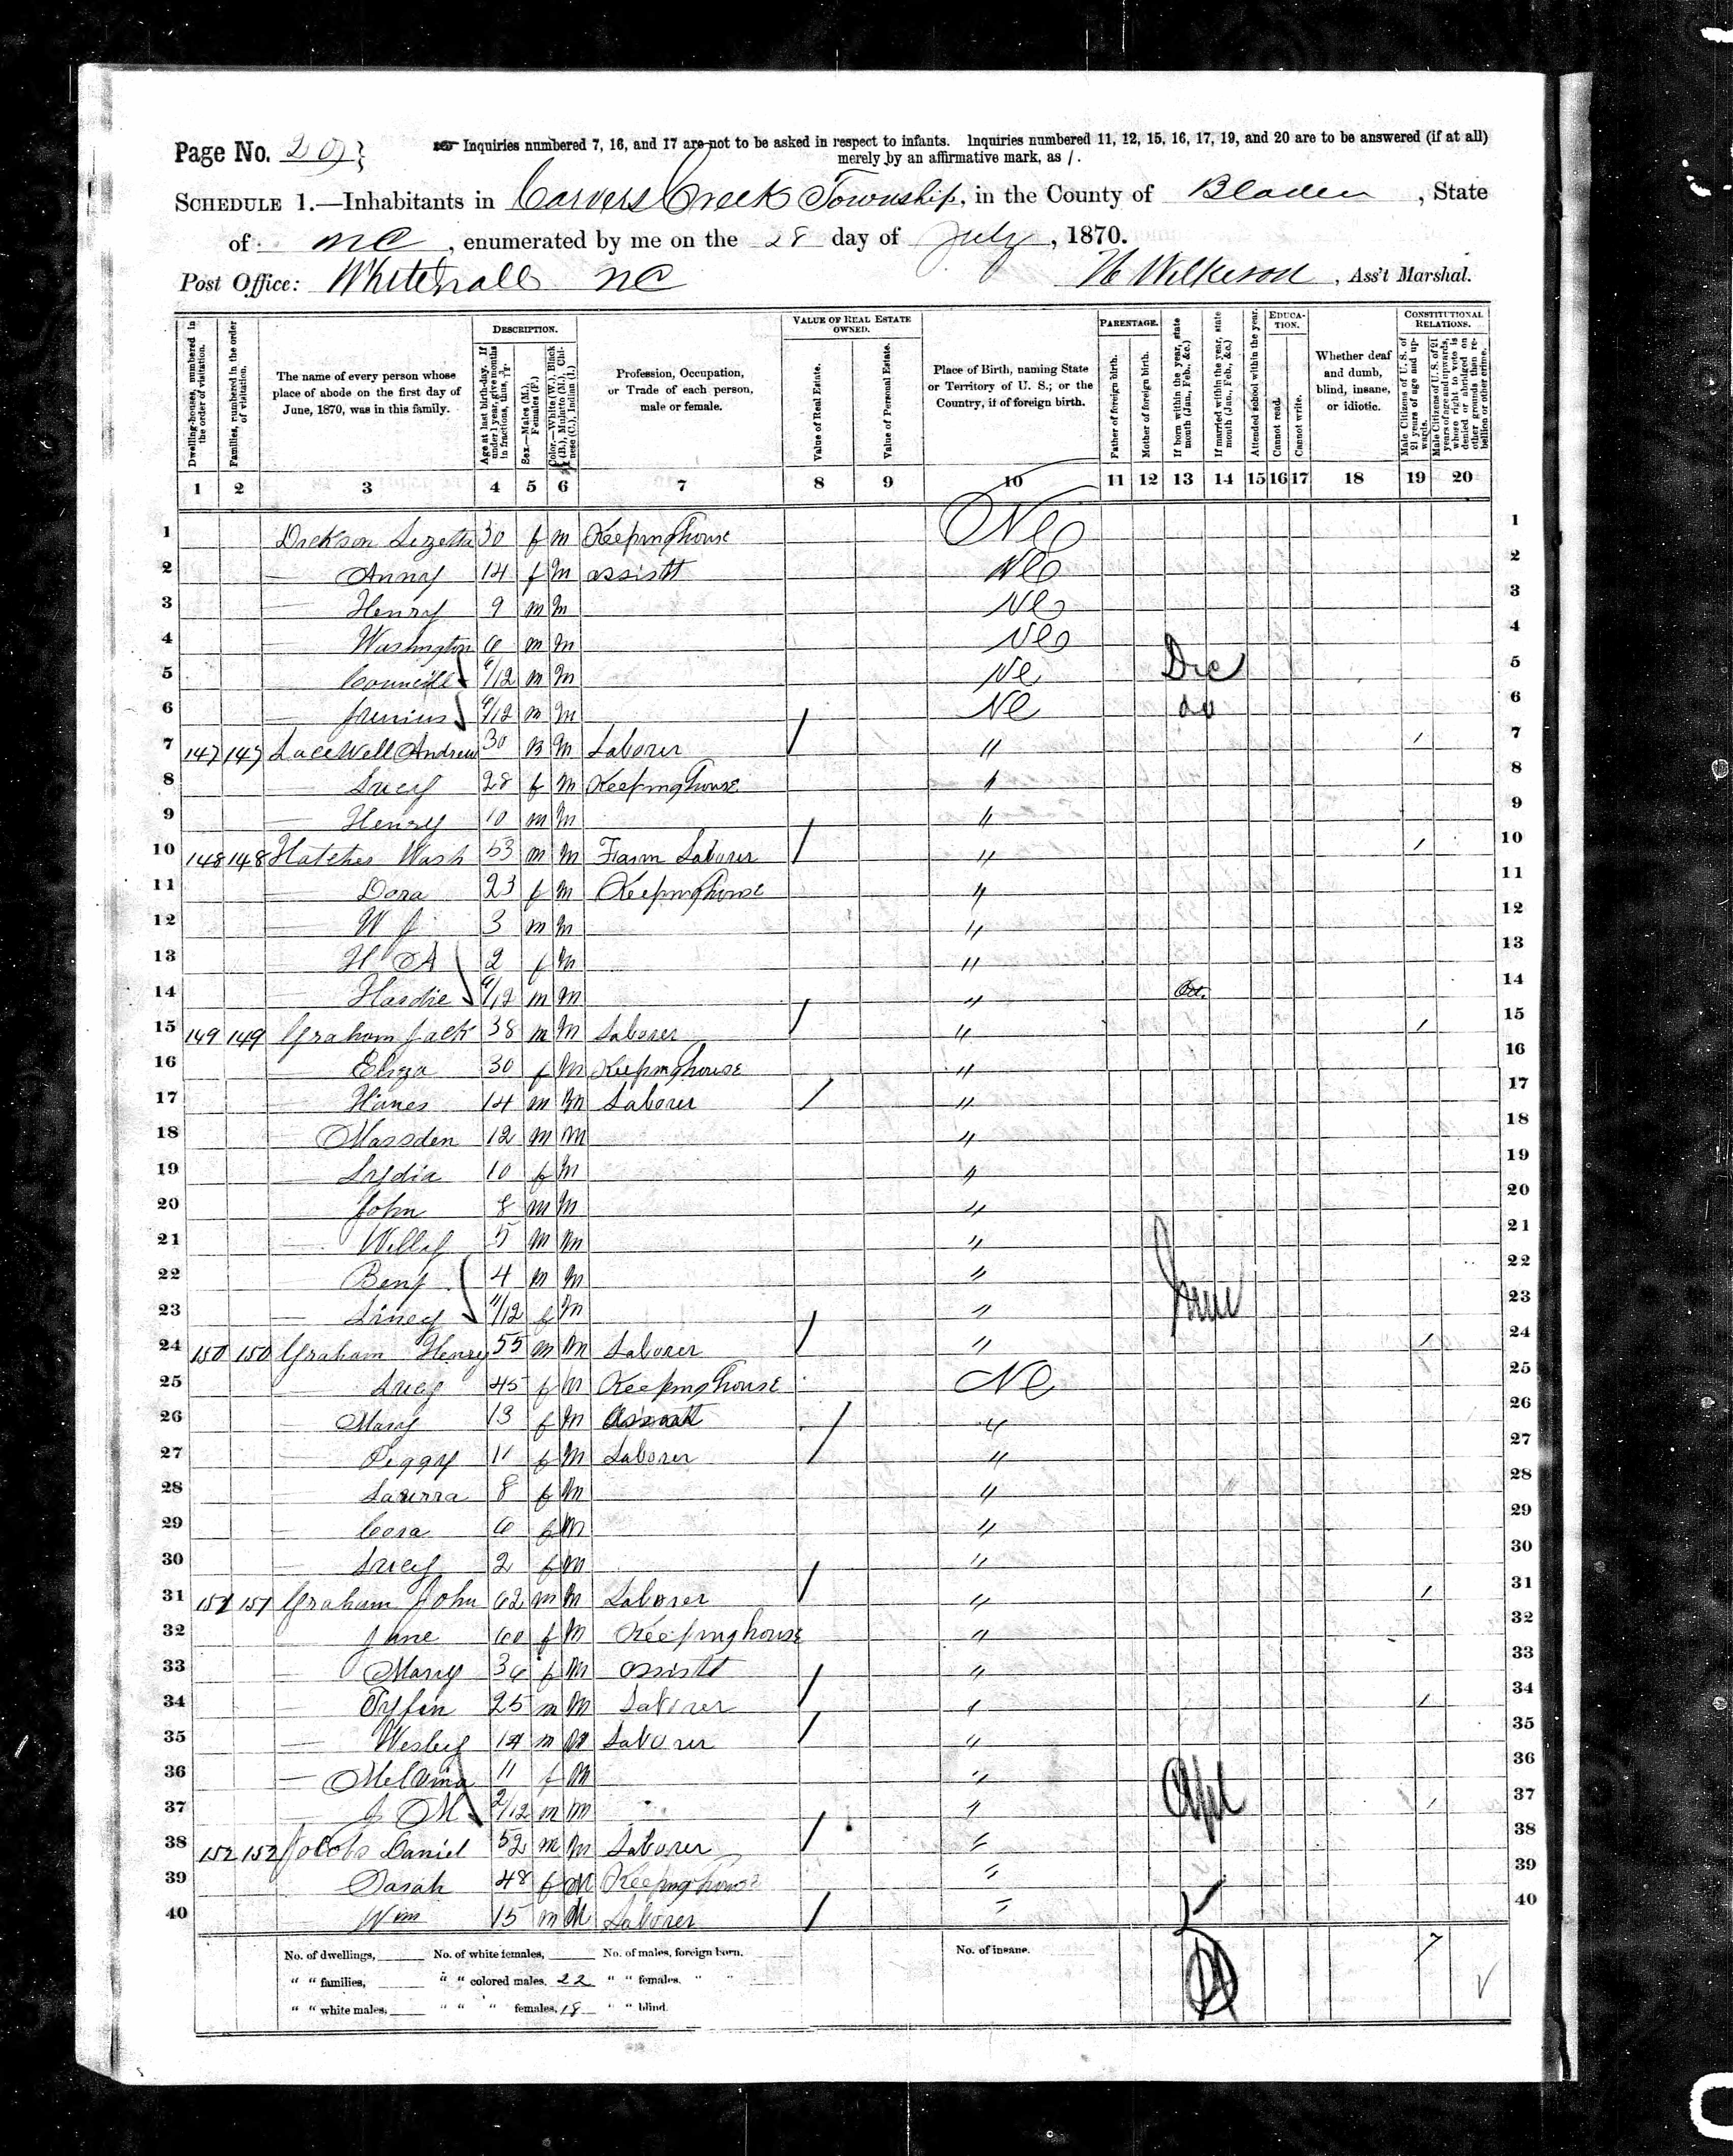 Page No. 20
☞ Inquiries numbered 7, 16, and 17 are not to be asked in respect to infants. Inquiries numbered 11, 12, 15, 16, 17, 19, and 20 are to be answered (if at all)
merely by an affirmative mark, as /.
SCHEDULE 1.—Inhabitants in Carvers Creek Township, in the County of Bladen, State
of NC, enumerated by me on the 28 day of July, 1870.
Post Office: Whitehall NC Wilkerson, Ass't Marshal.
Dwelling-houses, numbered in the order of visitation.
Families, numbered in the order of visitation.
The name of every person whose place of abode on the first day of June, 1870, was in this family.
DESCRIPTION.
Age at last birth-day. If under 1 year, give months in fractions, thus, 3/12.
Sex.—Males (M.), Females (F.)
Color.—White (W.), Black (B.), Mulatto (M.), Chinese (C.), Indian (I.)
Profession, Occupation, or Trade of each person, male or female.
VALUE OF REAL ESTATE OWNED.
Value of Real Estate.
Value of Personal Estate.
Place of Birth, naming State or Territory of U. S.; or the Country, if of foreign birth.
PARENTAGE.
Father of foreign birth.
Mother of foreign birth.
If born within the year, state month (Jan., Feb., &c.)
If married within the year, state month (Jan., Feb., &c.)
Attended school within the year.
EDUCATION.
Cannot read.
Cannot write.
Whether deaf and dumb, blind, insane, or idiotic.
CONSTITUTIONAL RELATIONS.
Male Citizens of U. S. of 21 years of age and upwards.
Male Citizens of U. S. of 21 years of age and upwards, whose right to vote is denied or abridged on other grounds than rebellion or other crime.
1 2 3 4 5 6 7 8 9 10 11 12 13 14 15 16 17 18 19 20
1 Dickson Lizetta 30 f m Keeping house NC 1
2 — Anny 14 f m assistt NC 2
3 — Henry 9 m m NC 3
4 — Washington 6 m m NC 4
5 — Councill /12 m m NC Dec 5
6 — Junius /12 m m NC do 6
7 147 147 Lacewell Andrew 30 B M Laborer / " / 7
8 — Lucy 28 f m Keeping house " 8
9 — Henry 10 m m " 9
10 148 148 Hatcher Wash 53 m m Farm Laborer / " / 10
11 — Dora 23 f m Keeping house " 11
12 — W J 3 m m " 12
13 — H A 2 f m " 13
14 — Hardie /12 m m " Oct. 14
15 149 149 Graham Jack 38 m m Laborer / " / 15
16 — Eliza 30 f m Keeping house " 16
17 — Hanes 14 m m Laborer / " 17
18 — Marsden 12 m m " 18
19 — Lydia 10 f m " 19
20 — John 8 m m " 20
21 — Willy 5 m m " 21
22 — Benj 4 m m " 22
23 — 11/12 f m " June 23
24 150 150 Graham Henry 55 m m Laborer / " / 24
25 — Lucy 45 f m Keeping house NC 25
26 — Mary 13 f m Assistt " 26
27 — Piggy 11 f m Laborer / " 27
28 — 8 f m " 28
29 — Cora 6 f m " 29
30 — Lucy 2 f m " 30
31 151 151 Graham John 62 m m Laborer / " / 31
32 — Jane 60 f m Keeping house " 32
33 — Mary 36 f m assistt " 33
34 — 25 m m Laborer / " / 34
35 — Wesley 14 m m Laborer / " 35
36 — Melvina 11 f m " 36
37 — J M 2/12 m m " Apl / 37
38 152 152 Jacobs Daniel 52 m m Laborer / " 38
39 — Sarah 48 f M Keeping house " 39
40 — Wm 15 m M Laborer / " 40
No. of dwellings, No. of white females, No. of males, foreign born. No. of insane. 5 7
" " families, " " colored males, 22 " " females, " "
" " white males, " " " females, 18 " " blind.